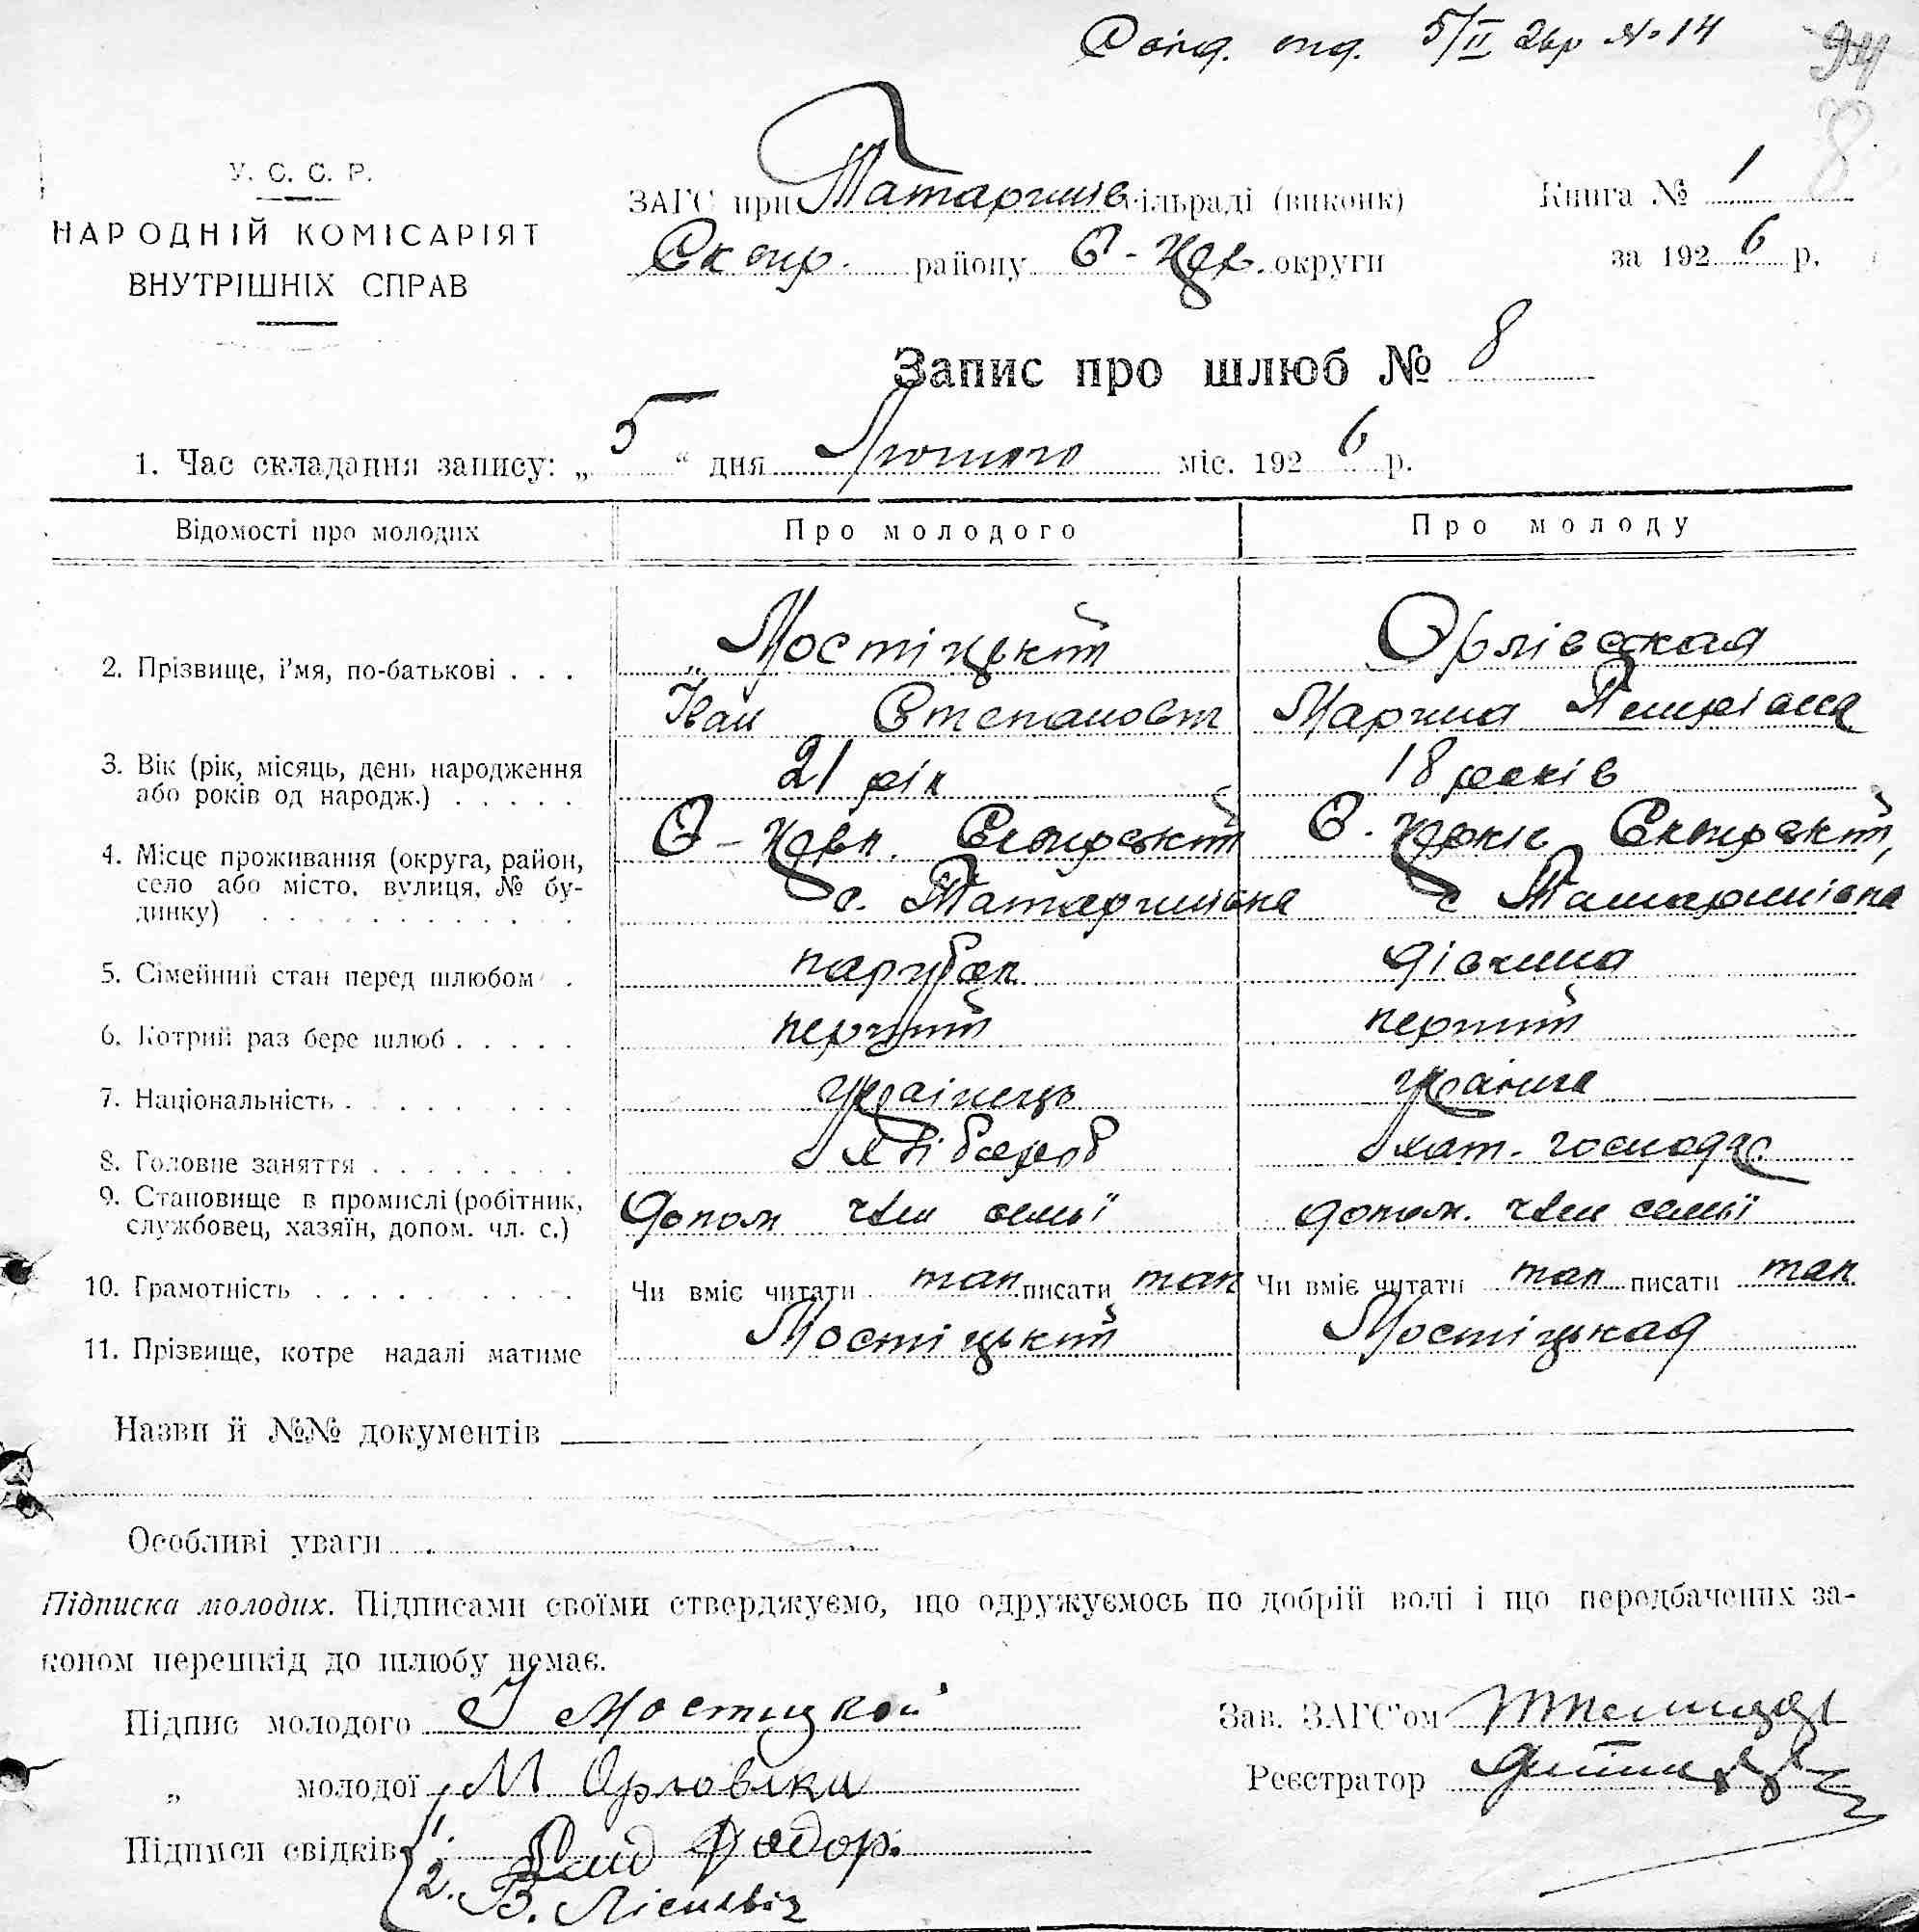 Свід. вид. 5/II 26р № 14
94
8
У. С. С. Р.
НАРОДНІЙ КОМІСАРІЯТ
ВНУТРІШНІХ СПРАВ
ЗАГС при Татаринів. сільраді (виконк)
Сквир. району Б-Церк. округи
Книга № 1
за 1926 р.
Запис про шлюб № 8
1. Час складання запису: „5“ дня Лютого міс. 1926 р.
Відомості про молодих
Про молодого
Про молоду
2. Прізвище, і'мя, по-батькові . . .
Мостіцький
Орлівская
Іван Степанович
Марина
3. Вік (рік, місяць, день народження
або років од народж.) . . . . .
21 рік
18 років
4. Місце проживання (округа, район,
село або місто, вулиця, № бу-
динку) . . . . . . . . . .
Б-Церк. Сквирський
с. Татаринівка
Б. Церків Сквирський,
с Татаринівка
5. Сімейний стан перед шлюбом .
парубок
дівчина
6. Котрий раз бере шлюб . . . . .
перший
перший
7. Національність . . . . . . . .
українець
україн�ка
8. Головне заняття . . . . . . .
хлібороб
хат. господ
9. Становище в промислі (робітник,
службовец, хазяїн, допом. чл. с.)
допом член семьї
допом. член семьї
10. Грамотність . . . . . . . . .
Чи вміє читати так писати так
Чи вміє читати так писати так
11. Прізвище, котре надалі матиме
Мостіцький
Мостіцькая
Назви й №№ документів
Особливі уваги
Підписка молодих. Підписами своїми стверджуємо, що одружуємось по добрій волі і що передбачених за-
коном перешкід до шлюбу немає.
Підпис молодого І Мостицкой
„ молодої М Орловска
Підписи свідків 1. Федор.
2. В.
Зав. ЗАГС'ом
Реєстратор